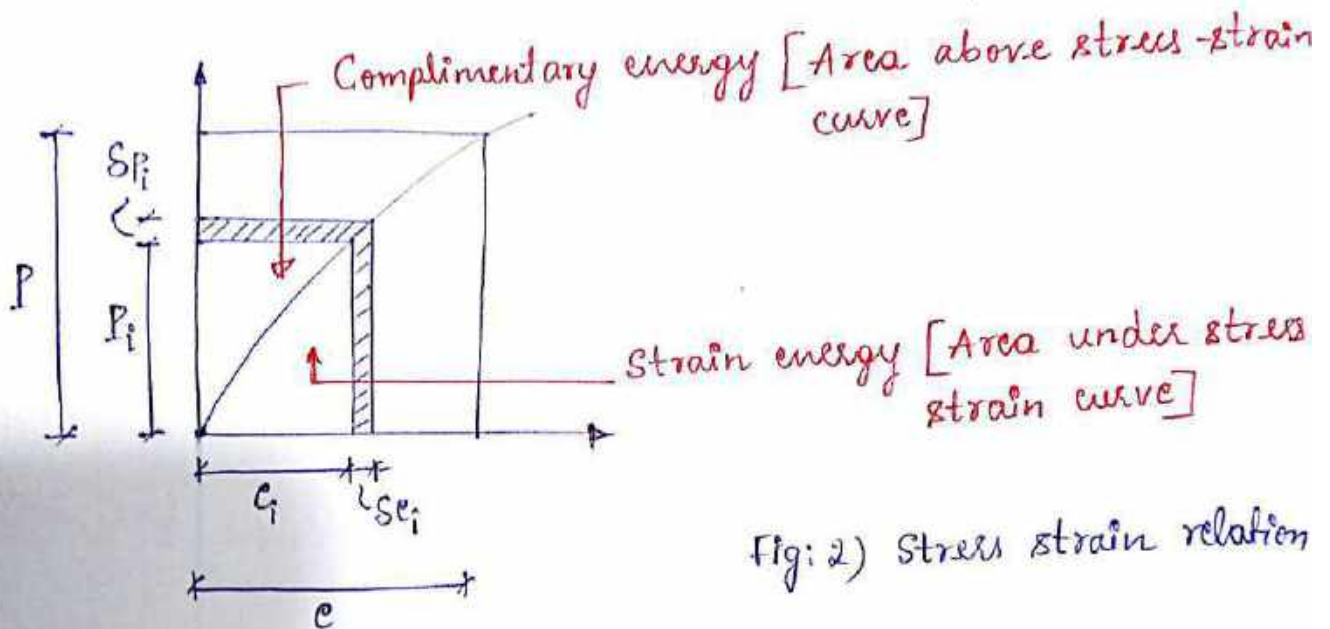 Complimentary energy [Area above stress-strain
curve]
δPᵢ
P
Pᵢ
Strain energy [Area under stress
strain curve]
eᵢ
δeᵢ
e
Fig: 2) Stress strain relation